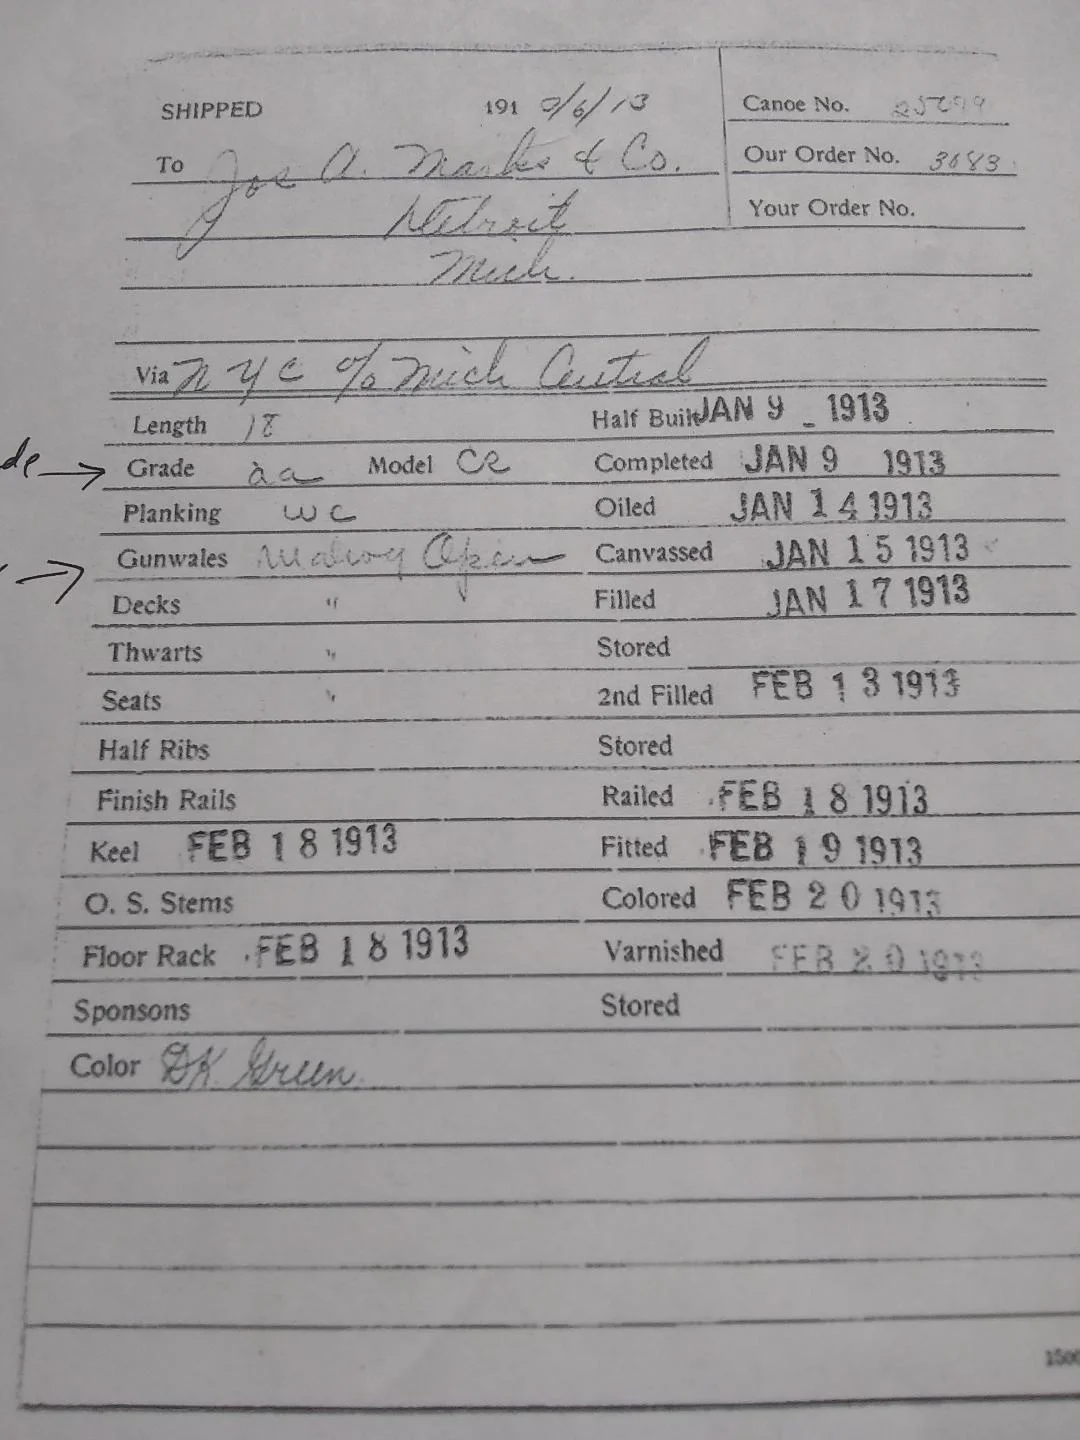 SHIPPED 191 /6/13 Canoe No.
To Jos A. Marks & Co. Our Order No. 3683
Detroit Your Order No.
Mich.
Via N Y C % Mich Central
Length 18 Half Built JAN 9 1913
de → Grade aa Model CR Completed JAN 9 1913
Planking WC Oiled JAN 14 1913
→ Gunwales Open Canvassed JAN 15 1913
Decks " Filled JAN 17 1913
Thwarts " Stored
Seats " 2nd Filled FEB 13 1913
Half Ribs Stored
Finish Rails Railed FEB 18 1913
Keel FEB 18 1913 Fitted FEB 19 1913
O. S. Stems Colored FEB 20 1913
Floor Rack FEB 18 1913 Varnished FEB 20 1913
Sponsons Stored
Color DK Green